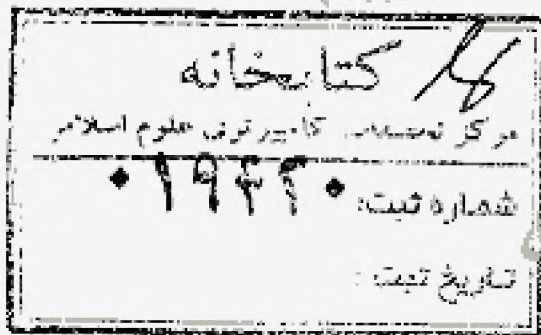 کتابخانه
مرکز تحقیقات کامپیوتری علوم اسلامی
شماره ثبت: ۰۱۹۴۲۰
تاریخ ثبت: